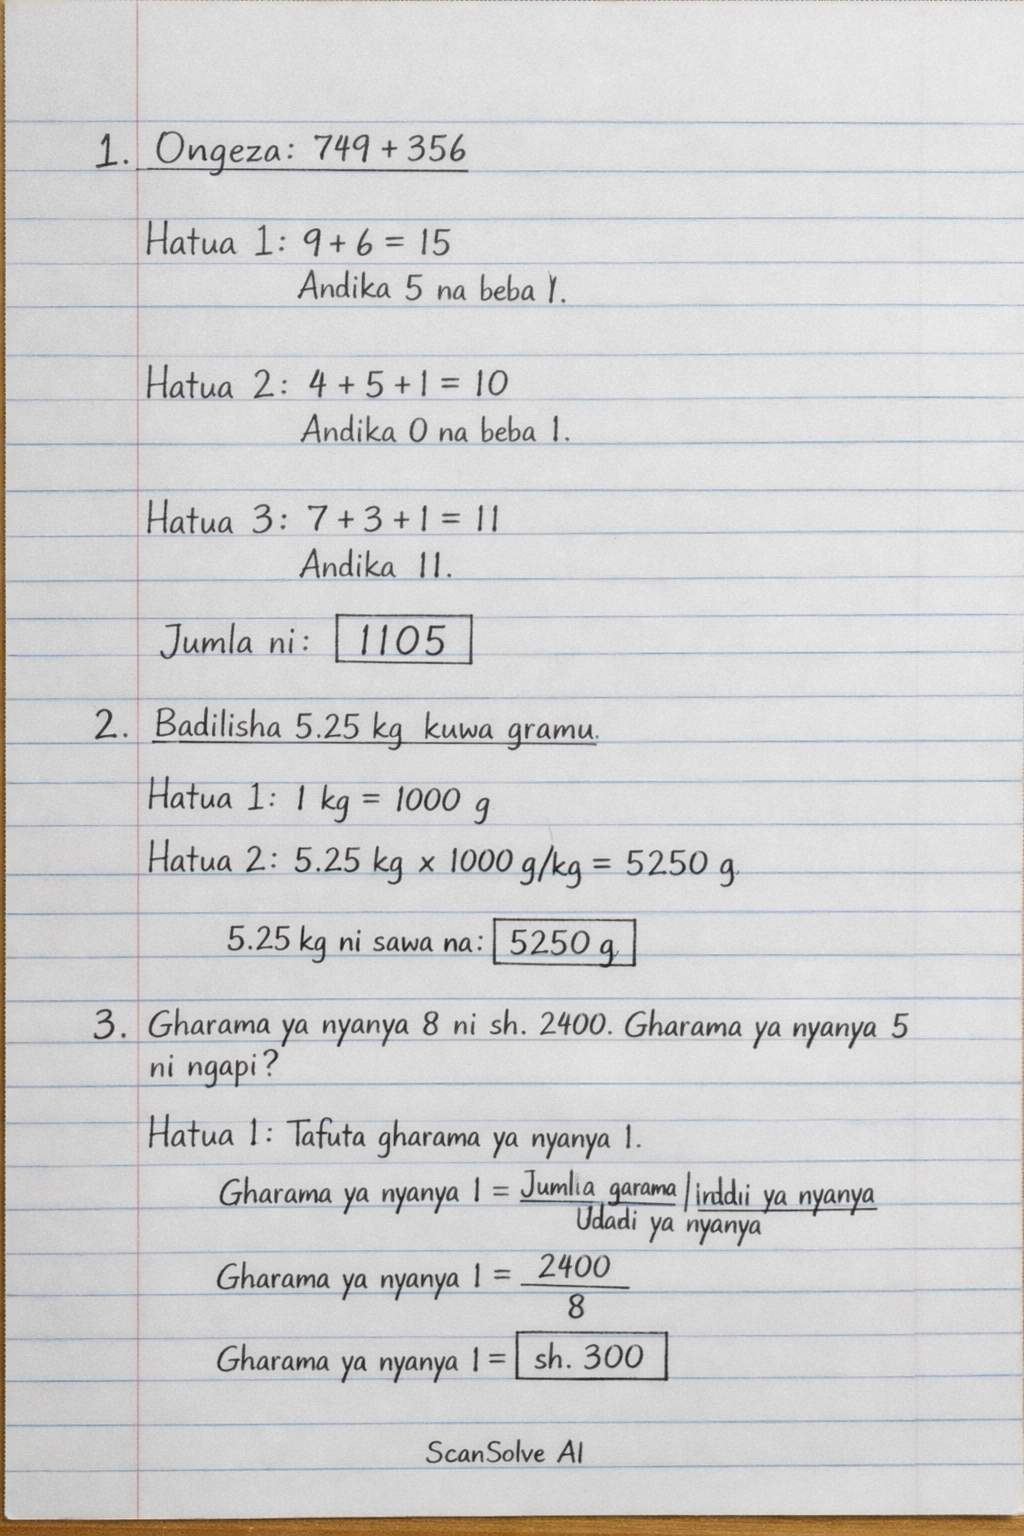 1. Ongeza: 749 + 356
Hatua 1: 9 + 6 = 15
Andika 5 na beba 1.
Hatua 2: 4 + 5 + 1 = 10
Andika 0 na beba 1.
Hatua 3: 7 + 3 + 1 = 11
Andika 11.
Jumla ni: 1105
2. Badilisha 5.25 kg kuwa gramu.
Hatua 1: 1 kg = 1000 g
Hatua 2: 5.25 kg x 1000 g/kg = 5250 g
5.25 kg ni sawa na: 5250 g
3. Gharama ya nyanya 8 ni sh. 2400. Gharama ya nyanya 5
ni ngapi?
Hatua 1: Tafuta gharama ya nyanya 1.
Gharama ya nyanya 1 = Jumlia garama | ya nyanya
Udadi ya nyanya
Gharama ya nyanya 1 = 2400
8
Gharama ya nyanya 1 = sh. 300
ScanSolve AI